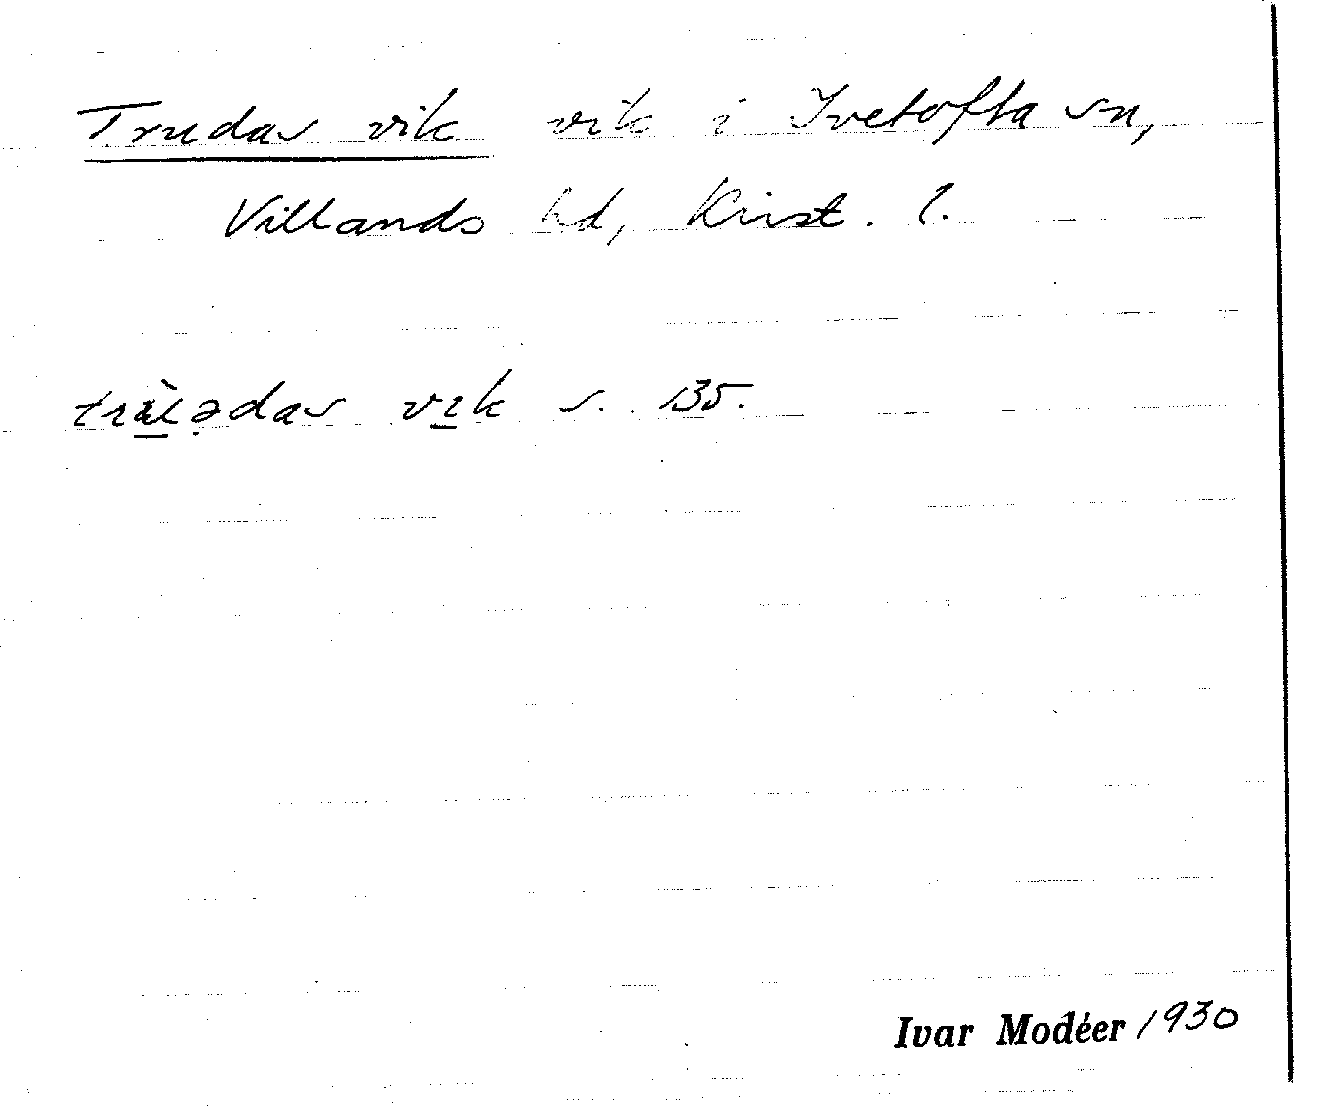 Trudas vik vik i Ivetofta sn,
Villands hd, Krist. l.
vɪk s. 135.
Ivar Modéer 1930